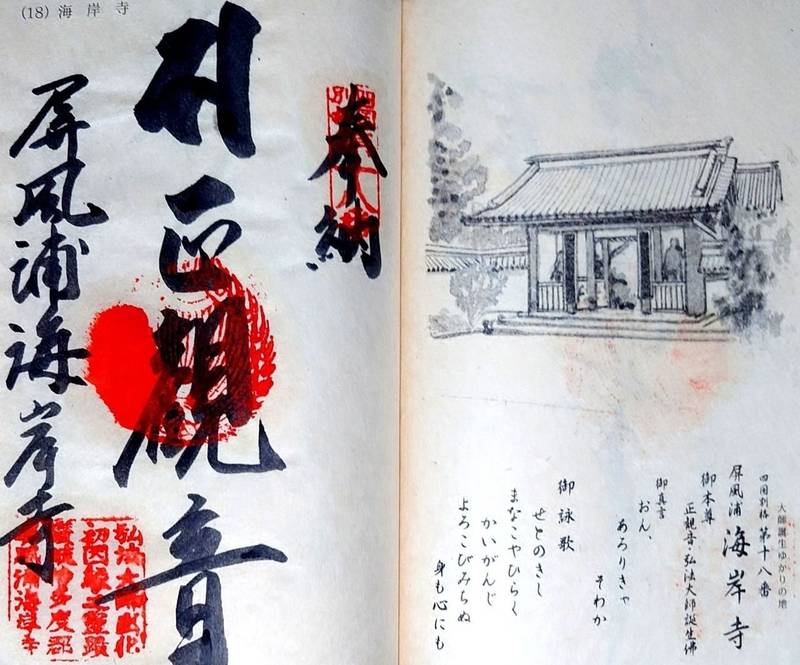 大師誕生ゆかりの地
四国別格 第十八番
屏風浦 海岸寺
御本尊
正観音・弘法大師誕生佛
御真言
おん、
あろりきゃ
そわか
御詠歌
せとのさし
まなこやひらく
かいがんじ
よろこびみちぬ
身も心にも
(18) 海岸寺
奉納
正観音
屏風浦海岸寺
弘法大師
多度郡
海岸寺